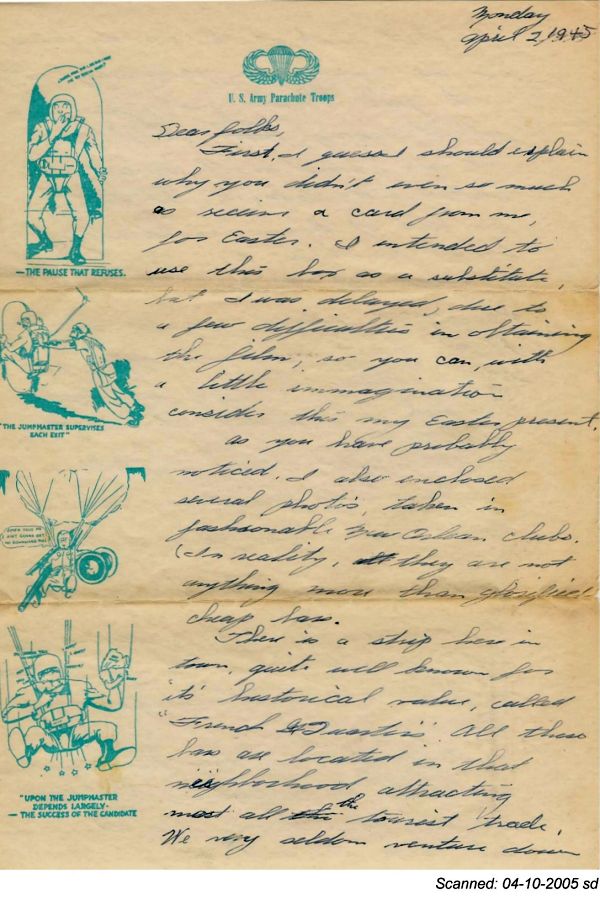 Monday
April 2, 1945
U. S. Army Parachute Troops
Dear folks,
First, I guess I should explain
why you didn't even so much
as receive a card from me,
for Easter. I intended to
use this box as a substitute,
but I was delayed, due to
a few difficulties in obtaining
the film, so you can, with
a little immagination
consider this my Easter present.
as you have probably
noticed. I also enclosed
several photos, taken in
fashionable New Orlean clubs.
(In reality, they are not
anything more than glorified
cheap bars.
There is a strip here in
town, quite well known for
it's historical value, called
"French Quarters". All these
bars are located in that
neighborhood attracting
most all the tourist trade.
We very seldom venture down
— THE PAUSE THAT REFUSES.
"THE JUMPMASTER SUPERVISES
EACH EXIT"
"UPON THE JUMPMASTER
DEPENDS LARGELY -
— THE SUCCESS OF THE CANDIDATE
Scanned: 04-10-2005 sd